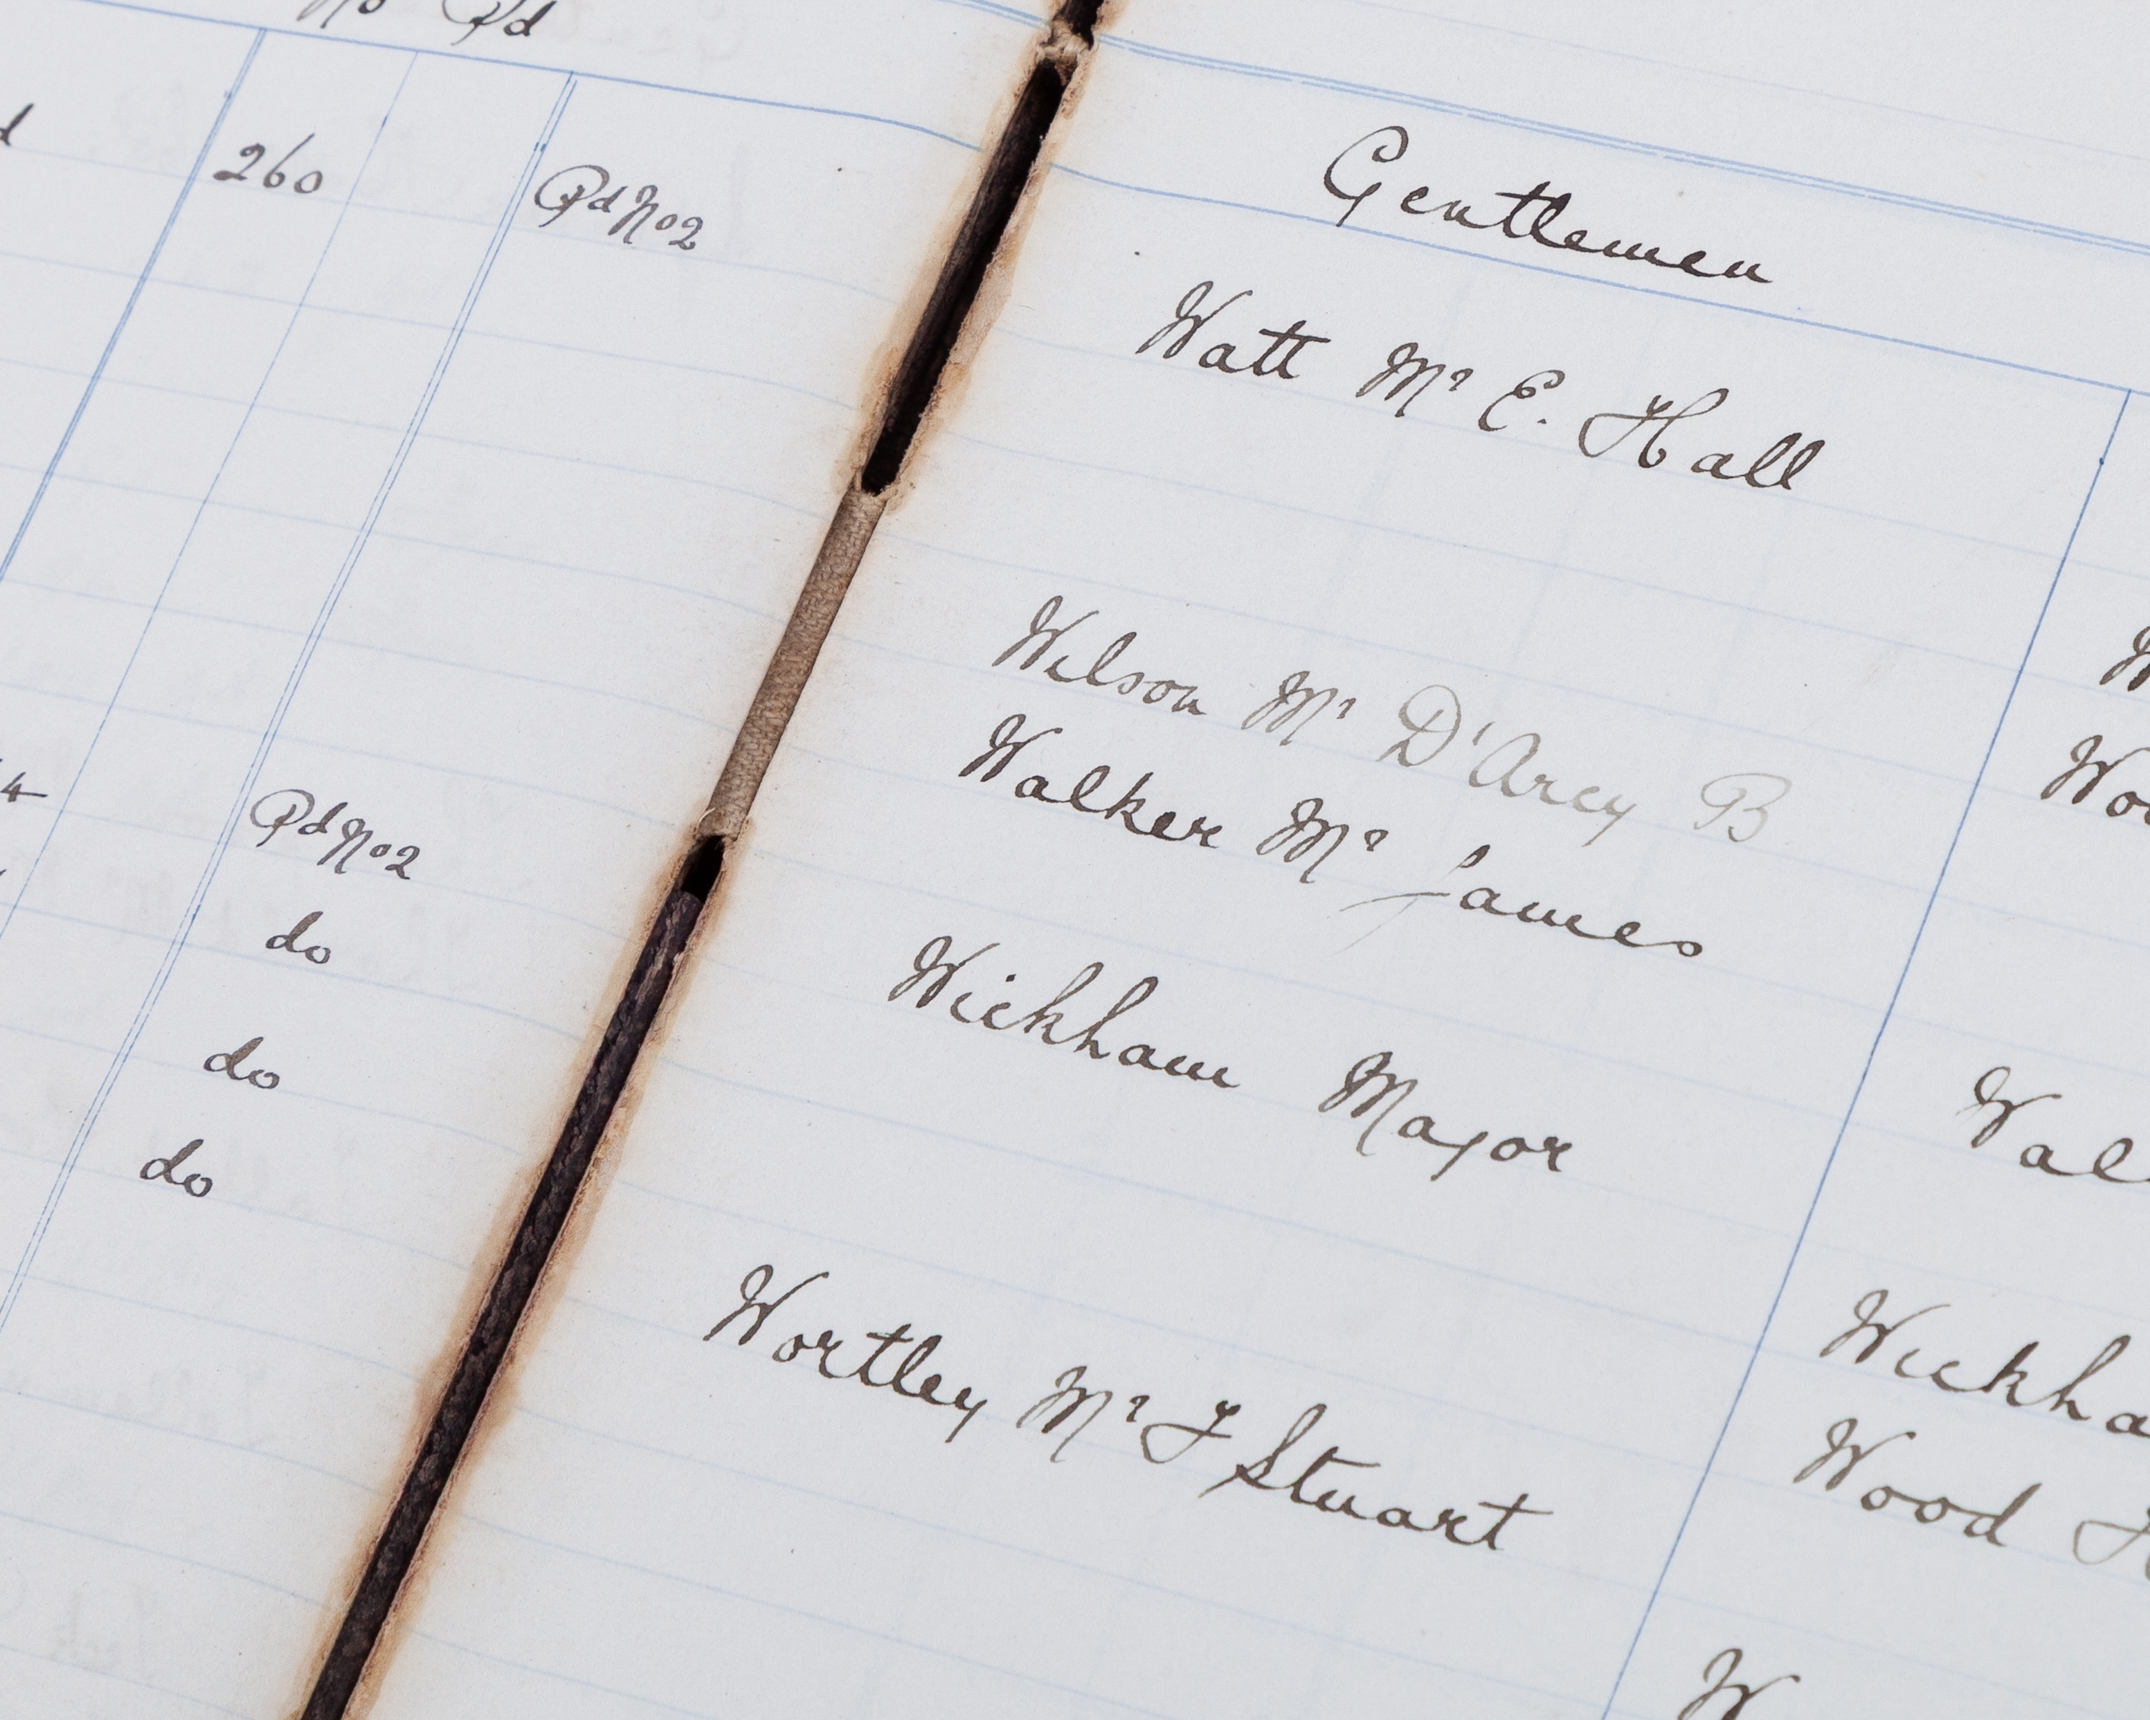 No Pd
260
Pd No 2
4
Pd No 2
do
do
do
Gentlemen
Watt Mr E. Hall
Wilson Mr D'Arcy B
Walker Mr James
Wickham Major
Wortley Mr J Stuart
Wal
Wickha
Wood
W